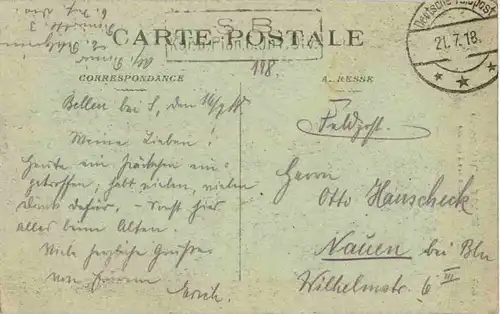 S.B.
CARTE POSTALE
CORRESPONDANCE
A RESSE
Deutsche Feldpost
21.7.18.
148.
Bellen bei S, den 16/7 18
Meine Lieben!
Heute ein Päckchen ein-
getroffen, habt vielen, vielen
Dank dafür, - Sonst hier
alles beim Alten.
Viele herzliche Grüsse
von Eurem
Erich.
Feldpost.
Herrn
Otto Hanscheck
Nauen bei Bln
Wilhelmstr. 6 III